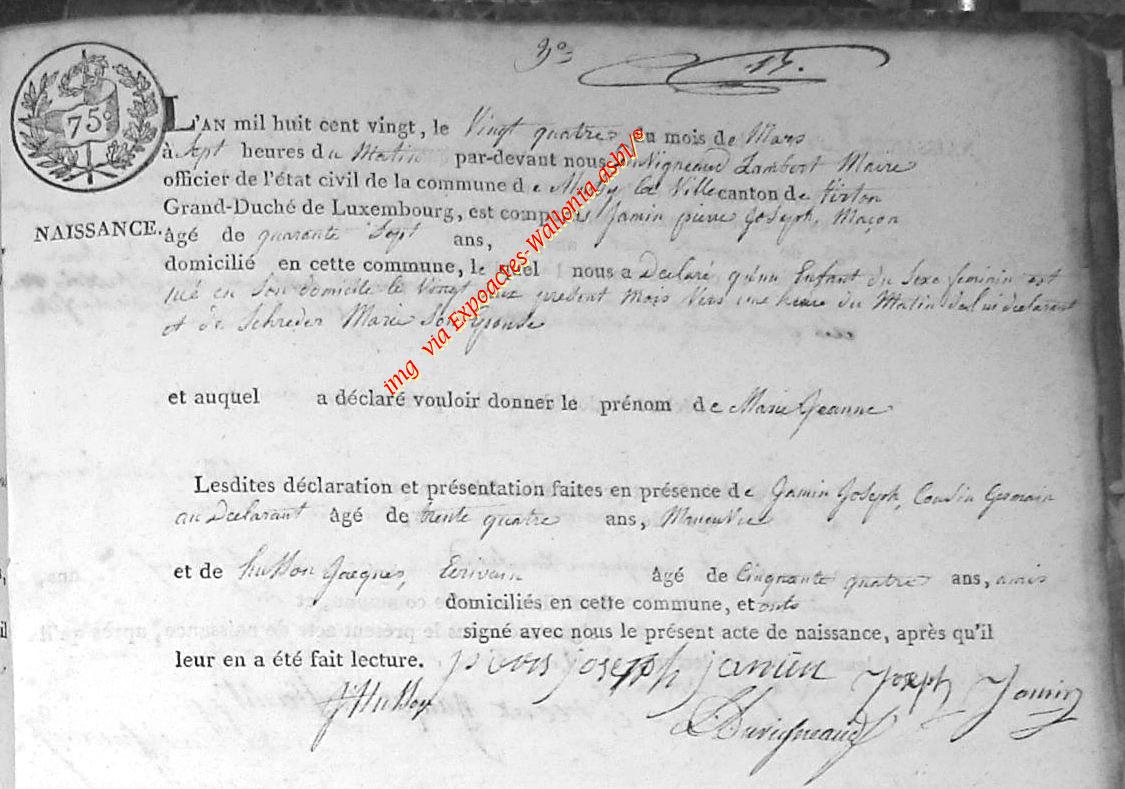 3º 13.
75c
L'AN mil huit cent vingt, le Vingt quatre du mois de Mars
à Sept heures du Matin par-devant nous Duvigneaud Lambert Maire
officier de l'état civil de la commune de la Ville canton de Virton
Grand-Duché de Luxembourg, est comparu Jamin pierre Joseph, Maçon
NAISSANCE. âgé de quarante Sept ans,
domicilié en cette commune, lequel nous a Declaré qu'un Enfant du Sexe feminin est
né en Son domicile le Vingt deux presént mois Vers une heure du Matin de lui declarant
et de Schreder Marie Son Epouse
et auquel a déclaré vouloir donner le prénom de Marie Jeanne
Lesdites déclaration et présentation faites en présence de Jamin Joseph, Cousin Germain
au Declarant âgé de trente quatre ans, Manouvrier
et de husson Jacques, Ecrivain âgé de Cinquante quatre ans, amis
domiciliés en cette commune, et onts
signé avec nous le présent acte de naissance, après qu'il
leur en a été fait lecture. pierre joseph jamin Joseph Jamin
JHusson
LDuvigneaud
img via Expoactes-Wallonia asbl/e